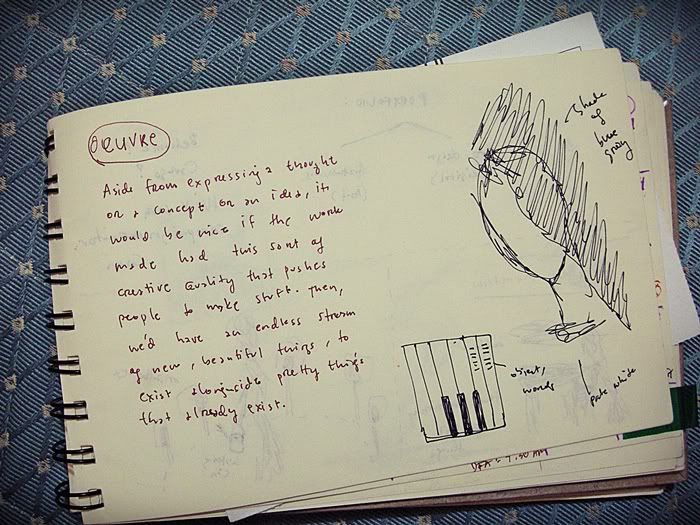 OEUVRE
Aside from expressing a thought
or a concept or an idea, it
would be nice if the work
made had this sort of
creative quality that pushes
people to make stuff. Then,
we'd have an endless stream
of new, beautiful things, to
exist alongside pretty things
that already exist.
Shade
of
blue
gray
object,
words
pale white
PORTFOLIO:
7:30 AM